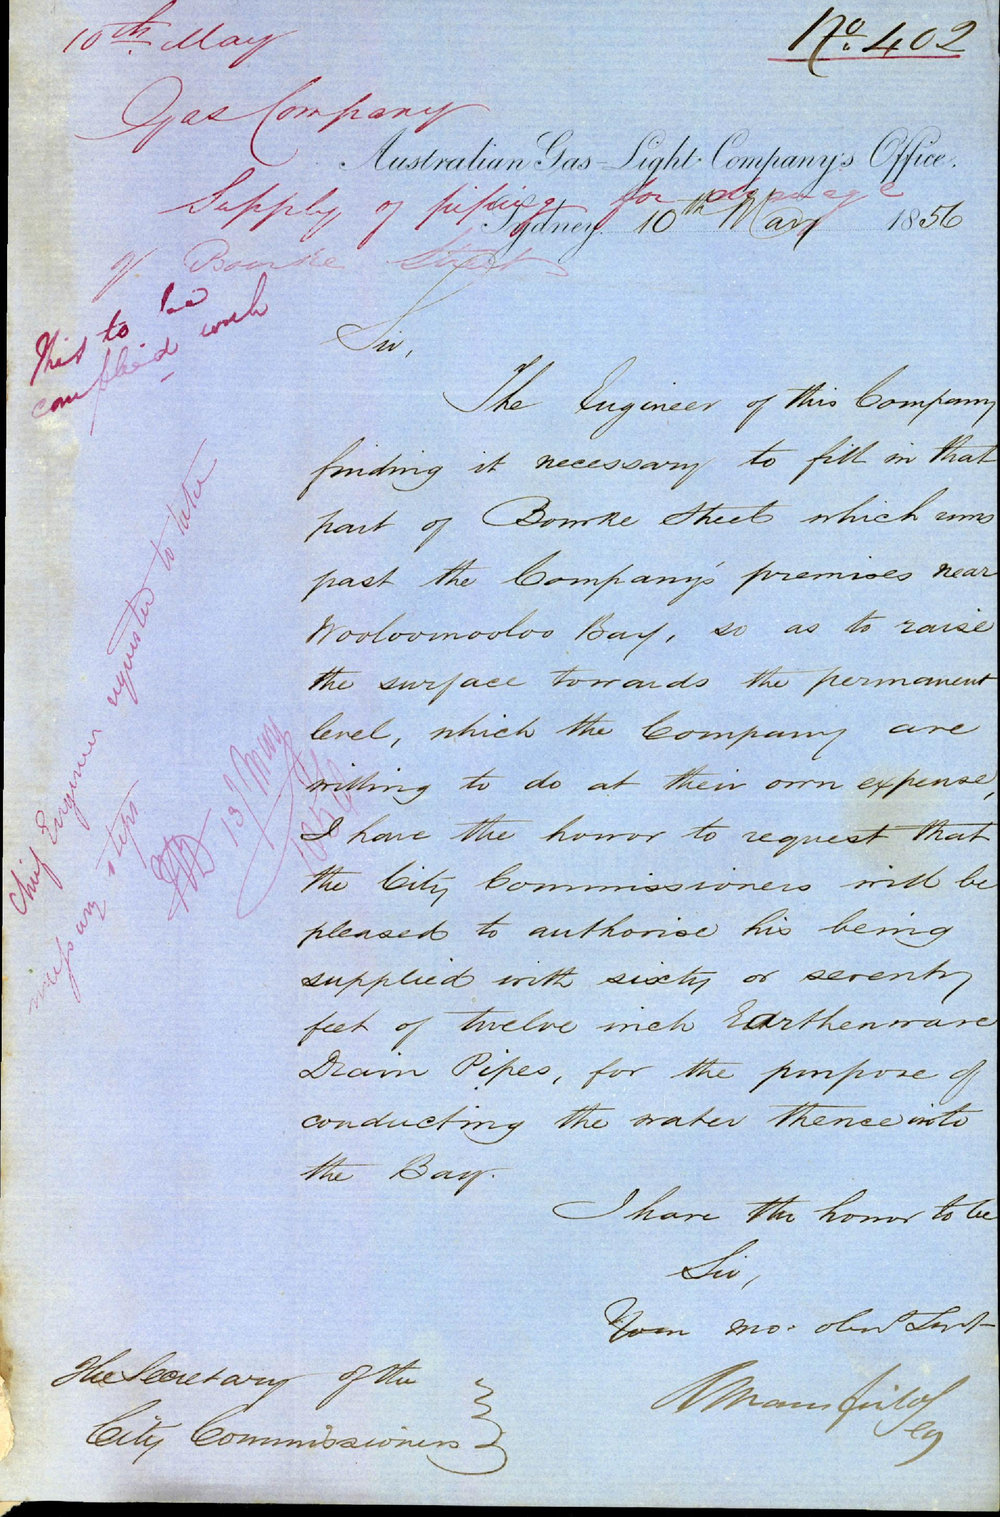 10th May
No. 402
Gas Company
Australian Gas-Light Company's Office.
Supply of piping for drainage
Sydney 10th May 1856
of Bourke Street
This to be
complied with
Sir,
The Engineer of this Company
finding it necessary to fill in that
part of Bourke Street which runs
past the Company's premises near
Wooloomooloo Bay, so as to raise
the surface towards the permanent
level, which the Company are
willing to do at their own expense,
I have the honor to request that
the City Commissioners will be
pleased to authorise his being
supplied with sixty or seventy
feet of twelve inch Earthenware
Drain Pipes, for the purpose of
conducting the water thence into
the Bay.
I have the honor to be
Sir,
Your mo. obt Servt
R Mansfield
Sey
The Secretary of the
City Commissioners
Chief Engineer requested to take
necessary steps
13 May
1856